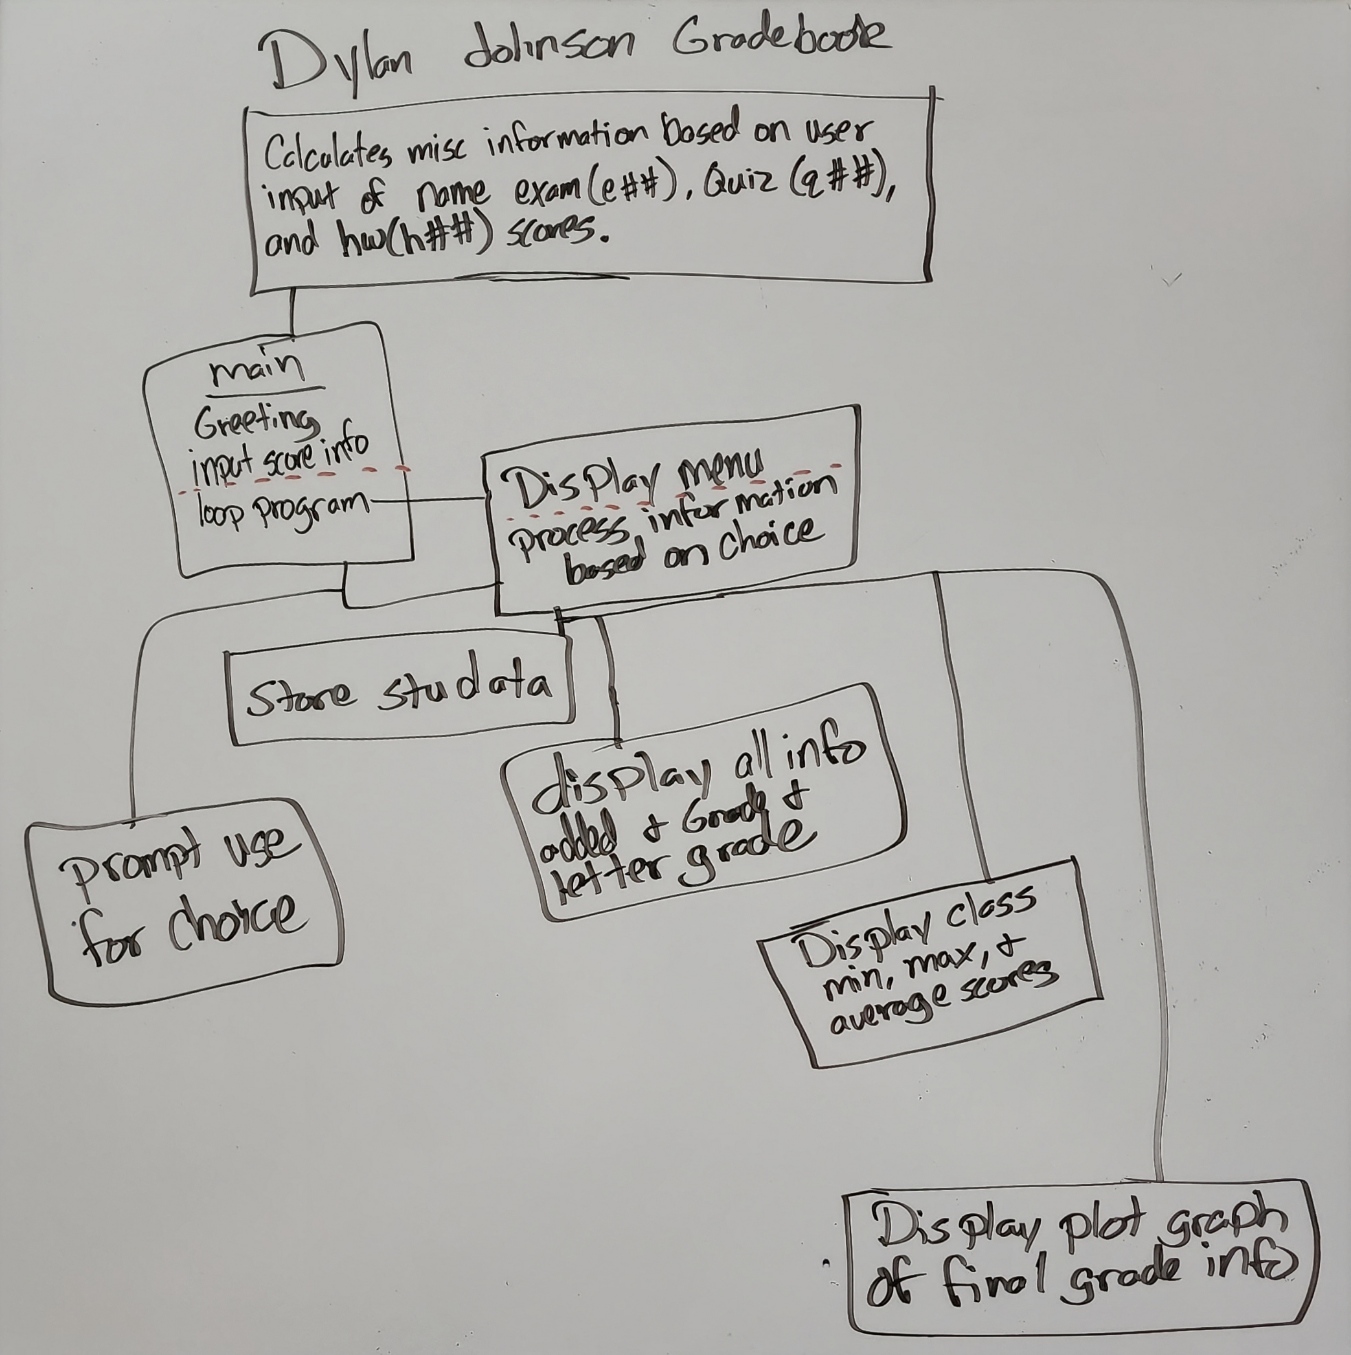 Dylan Johnson Gradebook
Calculates misc information based on user
input of name exam(e##), Quiz (q##),
and hw(h##) scores.
main
Greeting
input score info
loop program
Display menu
process information
based on choice
Store studata
display all info
added + Grade +
letter grade
prompt use
for choice
Display class
min, max, +
average scores
Display plot graph
of final grade info